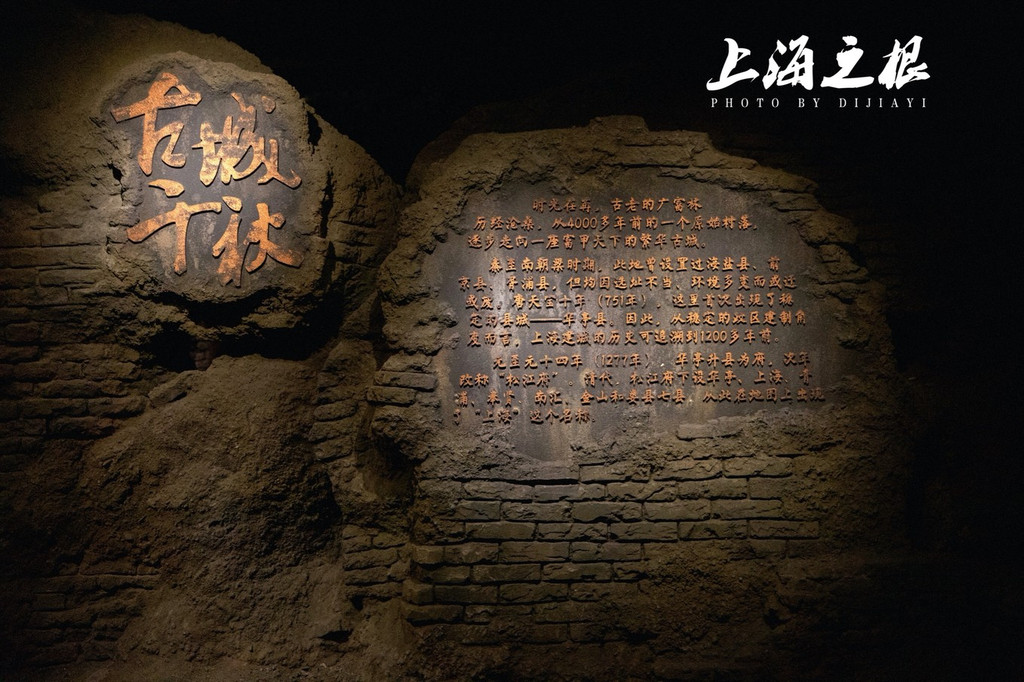 上海之根
PHOTO BY DIJIAYI
古城
千秋
时光荏苒，古老的广富林
历经沧桑，从4000多年前的一个原始村落，
逐步走向一座富甲天下的繁华古城。
秦至南朝梁时期，此地曾设置过海盐县、前
京县、胥浦县，但均因选址不当、环境多变而或迁
或废。唐天宝十年（751年），这里首次出现了稳
定的县城——华亭县。因此，从稳定的政区建制角
度而言，上海建城的历史可追溯到1200多年前。
元至元十四年（1277年），华亭升县为府，次年
改称“松江府”。清代，松江府下设华亭、上海、青
浦、奉贤、南汇、金山和娄县七县，从此在地图上出现
了“上海”这个名称。